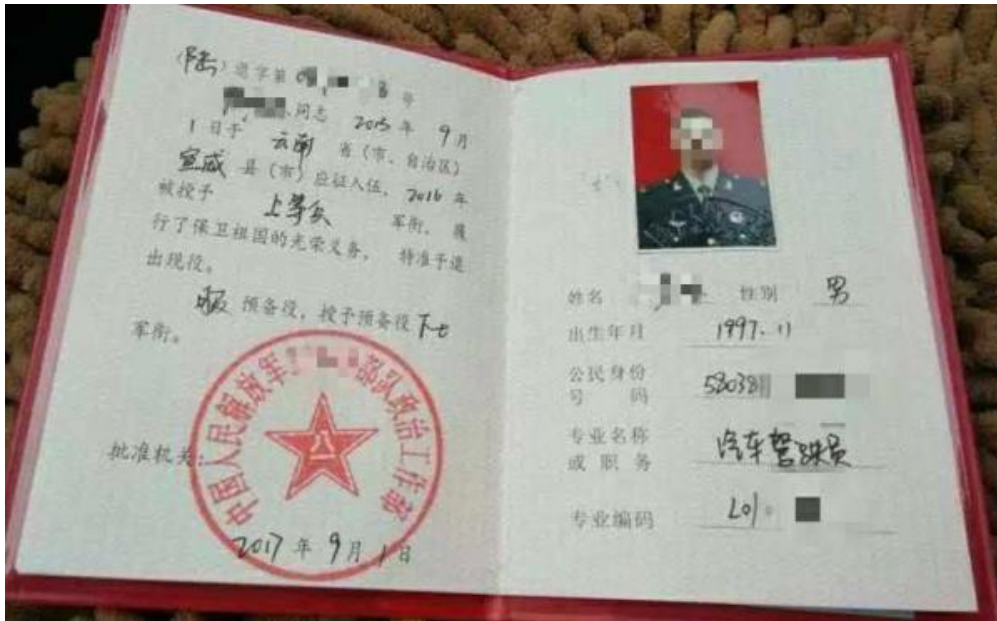 (陆)退字第 09 8 号
同志 2015 年 9 月
1 日于 云南 省(市、自治区)
宣威 县(市)应征入伍, 2016 年
被授予 上等兵 军衔, 履
行了保卫祖国的光荣义务, 特准予退
出现役。
服 预备役,授予预备役 下士
军衔。
中国人民解放军 部队政治工作部
八一
批准机关:
2017 年 9 月 1 日
姓名 性别 男
出生年月 1997.11
公民身份
号 码 53038
专业名称
或 职 务 汽车驾驶员
专业编码 L01